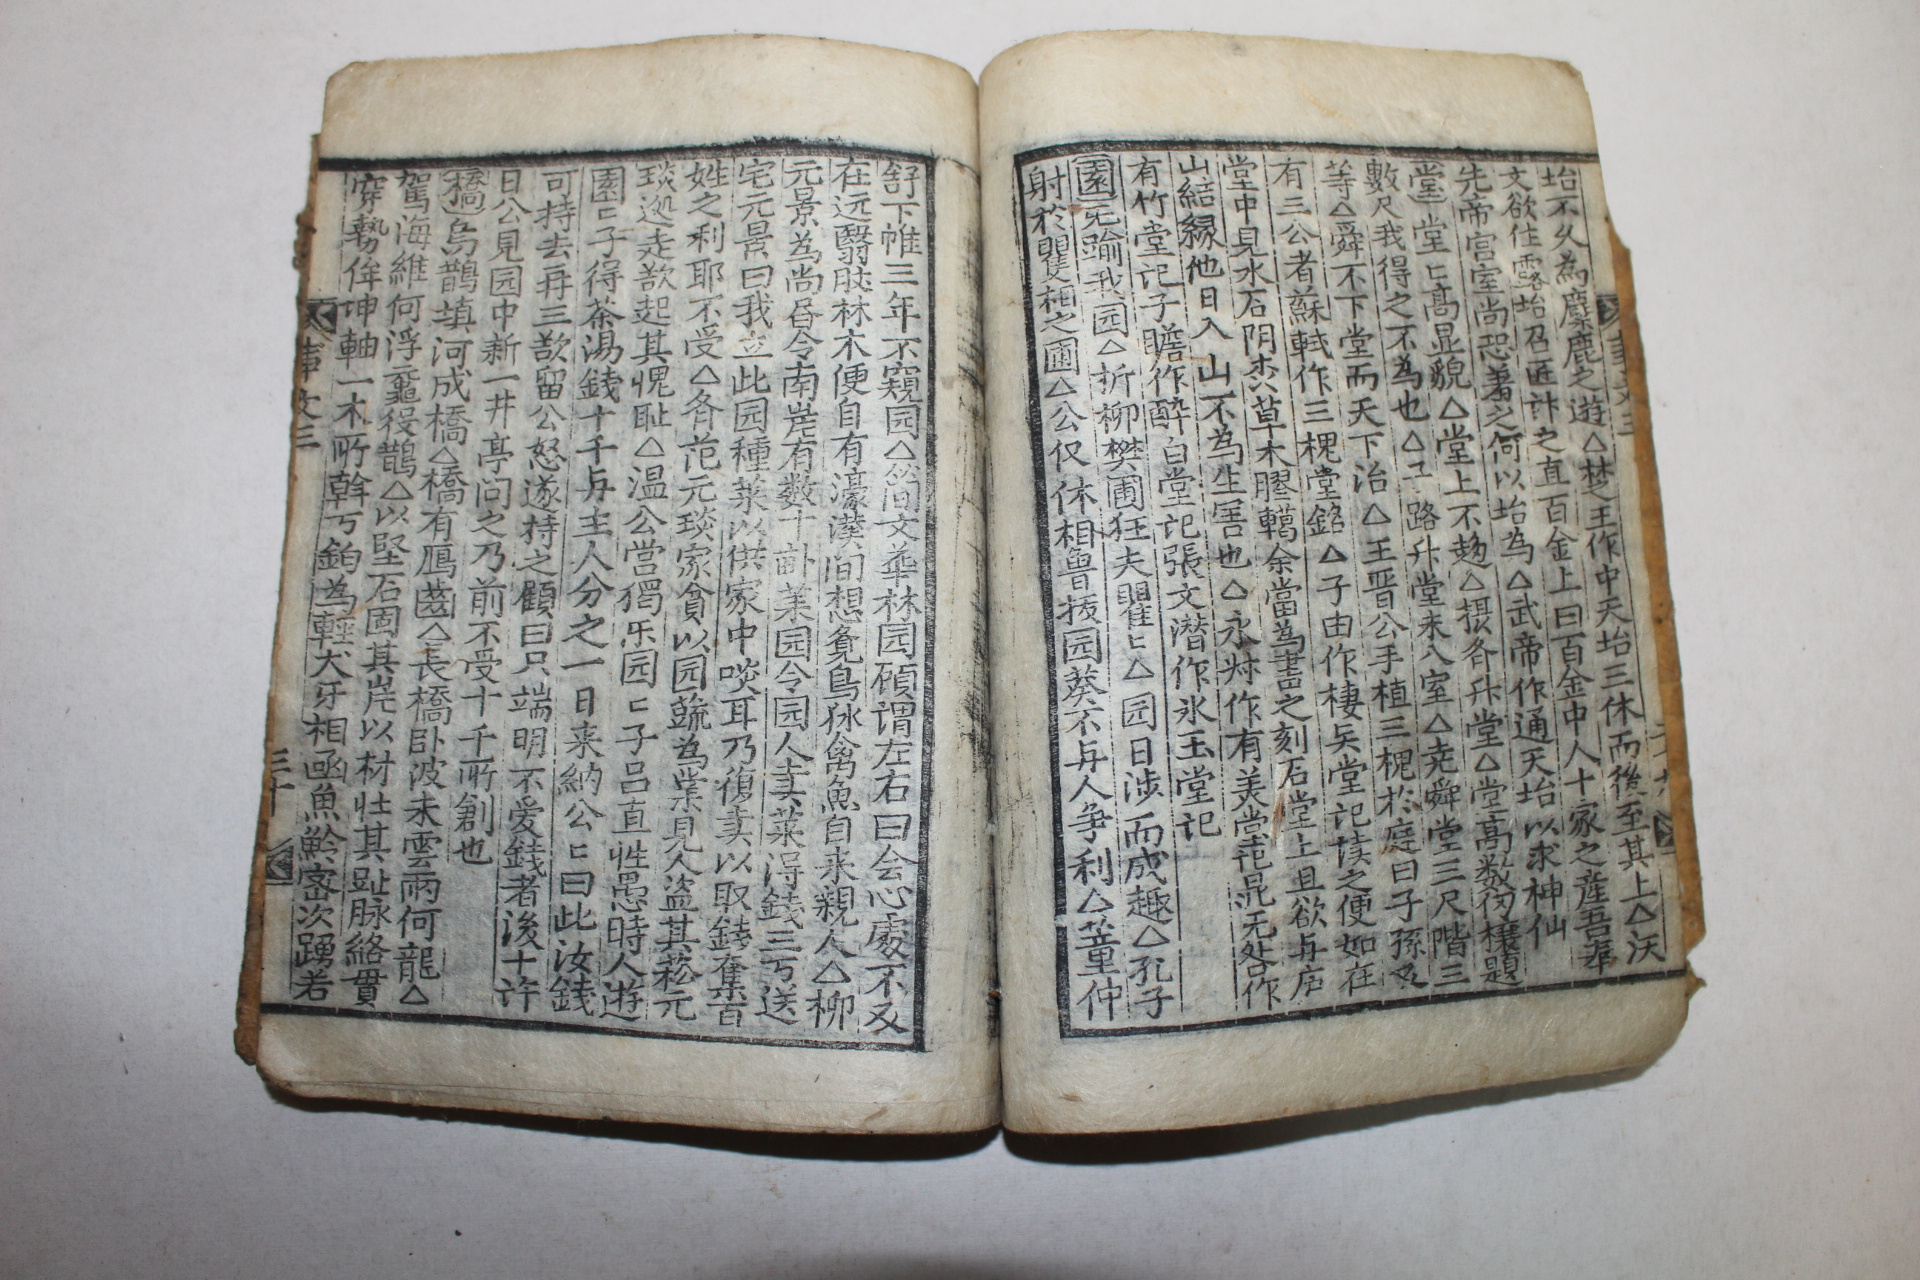 坮不久為麋鹿之遊△楚王作中天坮三休而後至其上△沃
文欲作露坮召匠計之直百金上曰百金中人十家之産吾奉
先帝宮室尚恐羞之何以坮為△武帝作通天坮以求神仙
堂 堂〻高显貌△堂上不趋△摄各升堂△堂高数仞榱題
數尺我得之不為也△子路升堂未入室△尭舜堂三尺階三
等△舜不下堂而天下治△王晋公手植三槐於庭曰子孫
有三公者蘇軾作三槐堂銘△子由作棲矣堂記读之便如在
堂中見水石阴森草木膠轕余當為書之刻石堂上且欲与庐
山結縁他日入山不为生客也△永叔作有美堂 作
有竹堂記子瞻作醉白堂記張文潜作氷玉堂記
園 无踰我园△折柳樊圃狂夫瞿〻△园日涉而成趣△孔子
射於矍相之圃△公仅休相魯拔园葵不与人争利△董仲
舒下帷三年不窺园△简文華林园顾谓左右曰会心處不必
在远翳肢林木便自有濠濮间想覔鳥狖禽魚自来親人△柳
元景為尚 令南岸有数十畝菜园令园人卖菜得錢三万送
宅元景曰我立此园種菜以供家中啖耳乃復卖以取錢奪百
姓之利耶不受△各范元琰家貧以园蔬為業見人盗其菘元
琰廵走 起其愧耻△温公営獨乐园〻子吕直性愚時人遊
園〻子得茶湯錢十千与主人分之一日来納公〻曰此汝錢
可持去再三欲留公怒遂持之顧曰只端明不爱錢者後十许
日公見园中新一井亭问之乃前不受十千所創也
橋 烏鵲填河成橋△橋有鴈齒△長橋卧波未雲雨何龍△
駕海維何浮黿役鵲△以堅石固其岸以材壮其趾脉絡貫
穿勢侔坤軸一木所幹万鈞為輕犬牙相凾魚鱗密次踴若
事文三
三十